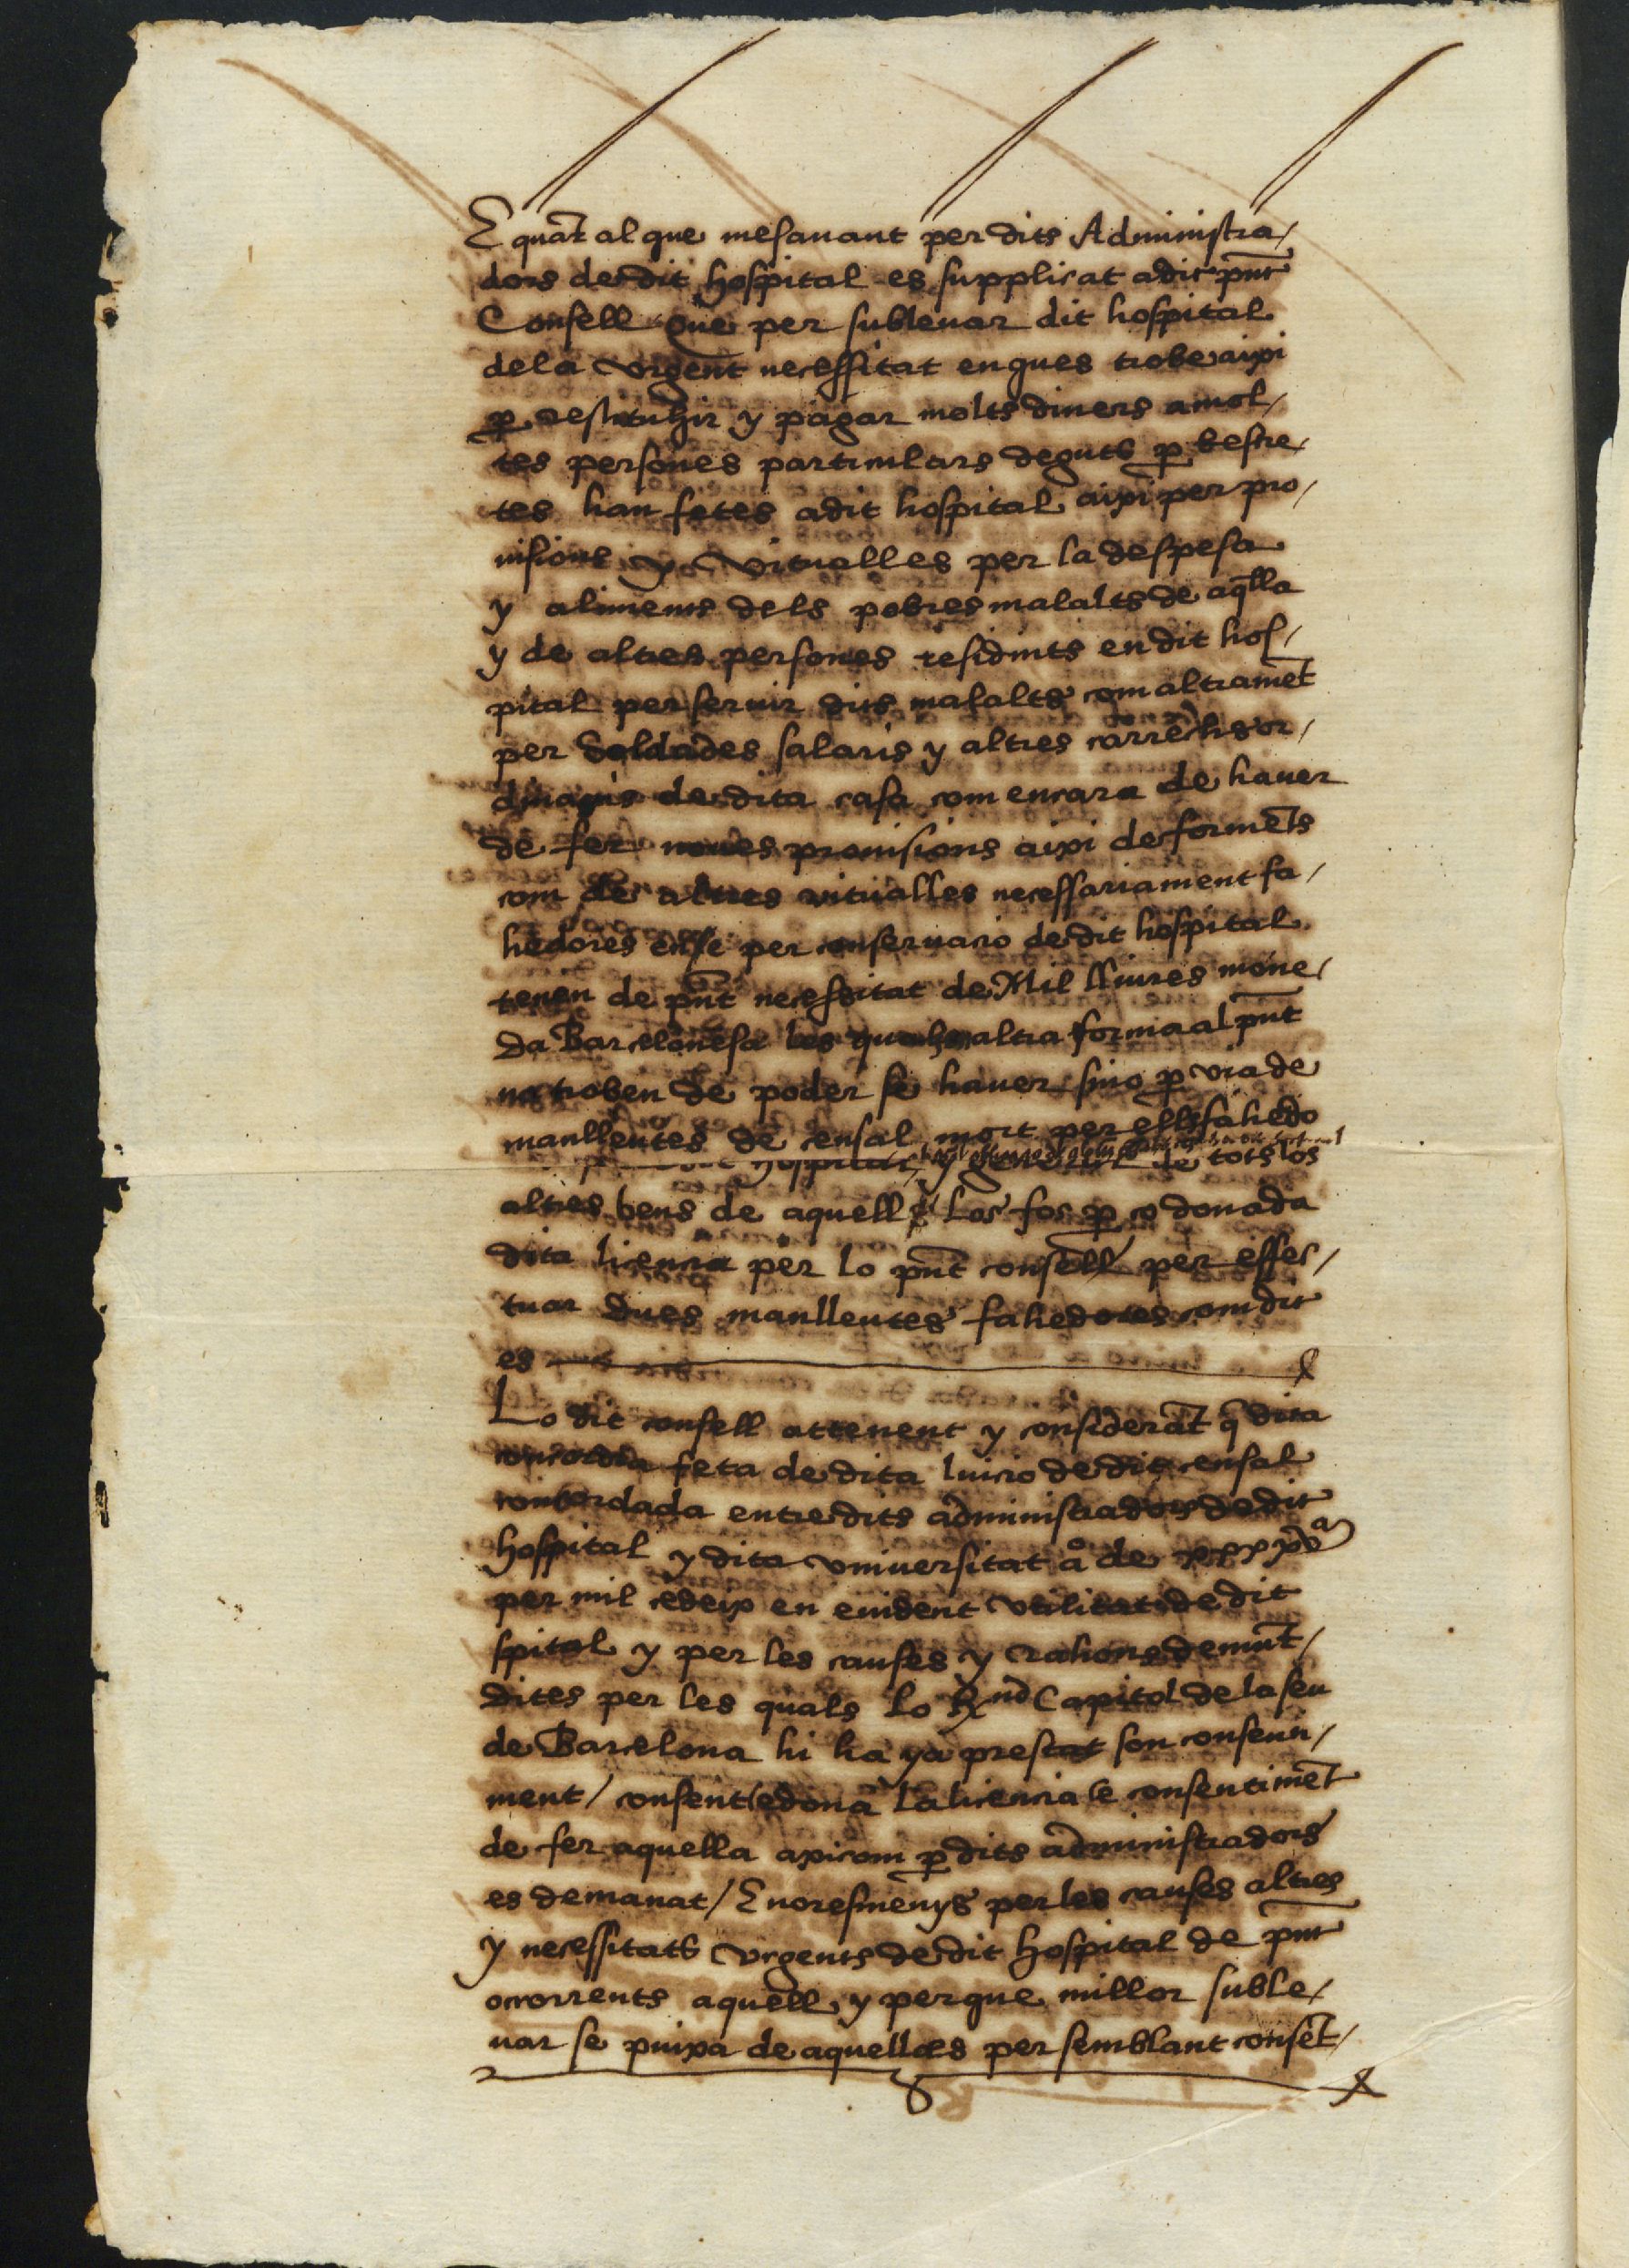 E quāt al que mesauant per dits Administra/
dors de dit hospital es supplicat a dit pn̄t
Consell que per subleuar dit hospital
de la vrgent necessitat en ques trobe aixi
p̱ restituhir y pagar molts diners a mol/
tes persones particulars deguts p̱ bestre/
tes han fetes a dit hospital aixi per pro/
uisions y vitualles per la despesa
y aliments dels pobres malalts de aq̄lla
y de altres persones residints en dit hos/
pital per seruir dits malalts com altramēt
per soldades salaris y altres carrechs or/
dinaris de dita casa com encara de hauer
de fer noues prouisions aixi de formēts
com de altres vitualles necessariament fa/
hedores en se per conseruacio de dit hospital
tenen de pn̄t necessitat de Mil lliures mone/
da Barcelonesa les quals altra forma al pn̄t
no troben de poder se hauer sino p̱ via de
manlleutes de censal mort per ells fahedo
hospital y general de tots los
altres bens de aquell Los fos p̱ co donada
dita licencia per lo pn̄t consell per effec/
tuar dues manlleutes fahedores com dit
es
Lo dit consell attenent y considerāt q̄ dita
concordia feta de dita luicio de dit censal
concordada entre dits administradors de dit
hospital y dita vniuersitat å de xxxv
per mil cedeix en euident vtilitat de dit
spital y per les causes y rahons demūt/
dites per les quals lo Rnd Capitol de la seu
de Barcelona hi ha ya prestat son consenti/
ment / consent e dona la licencia e consentimēt
de fer aquella axi com p̱ dits administradors
es demanat / E noresmenys per les causes altres
y necessitats vrgents de dit hospital de pn̄t
ocorrents aquell y perque millor suble/
uar se puixa de aquelles per semblant consēt/